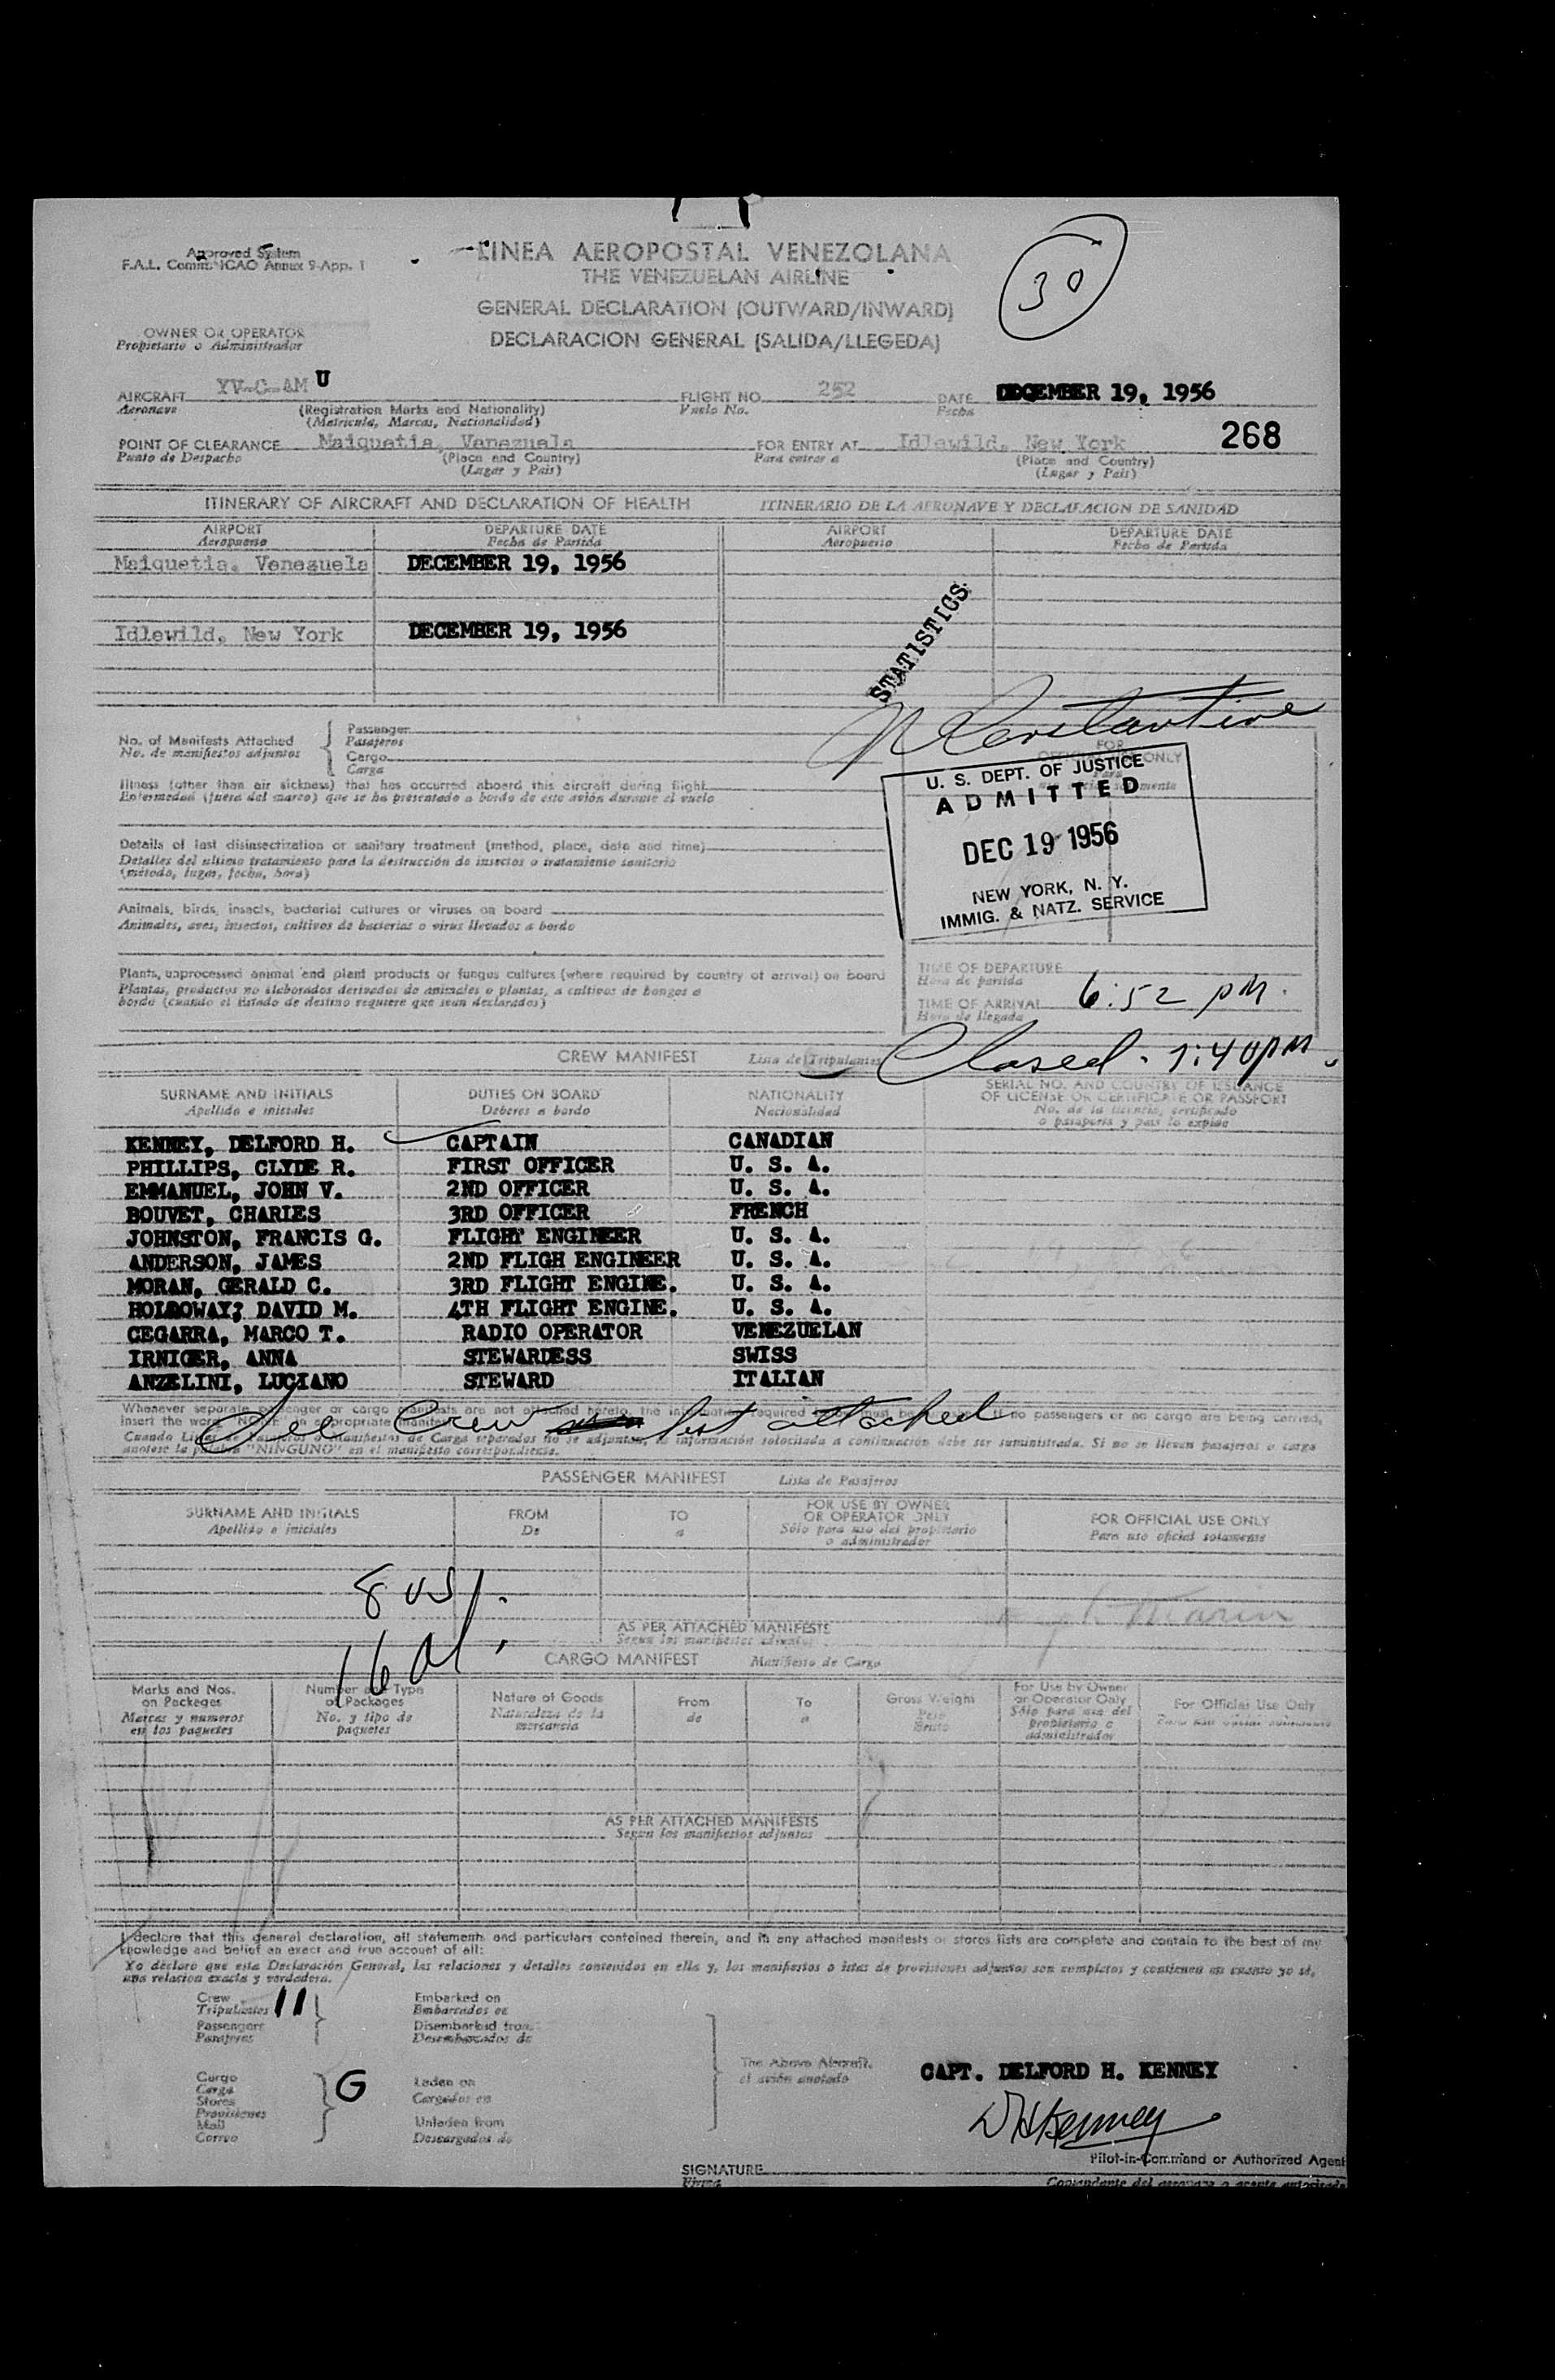 Approved System
F.A.L. Comm. ICAO Annex 9-App. 1
LINEA AEROPOSTAL VENEZOLANA
THE VENEZUELAN AIRLINE
GENERAL DECLARATION (OUTWARD/INWARD)
DECLARACION GENERAL (SALIDA/LLEGEDA)
30
OWNER OR OPERATOR
Propietario o Administrador
AIRCRAFT YV-C-AM U FLIGHT NO. 252 DATE DECEMBER 19, 1956
Aeronave (Registration Marks and Nationality) Vuelo No. Fecha
(Matricula, Marcas, Nacionalidad)
268
POINT OF CLEARANCE Maiquetia, Venezuela FOR ENTRY AT Idlewild, New York
Punto de Despacho (Place and Country) Para entrar a (Place and Country)
(Lugar y Pais) (Lugar y Pais)
ITINERARY OF AIRCRAFT AND DECLARATION OF HEALTH ITINERARIO DE LA AERONAVE Y DECLARACION DE SANIDAD
AIRPORT DEPARTURE DATE AIRPORT DEPARTURE DATE
Aeropuerto Fecha de Partida Aeropuerto Fecha de Partida
Maiquetia, Venezuela DECEMBER 19, 1956
Idlewild, New York DECEMBER 19, 1956
STATISTICS
No. of Manifests Attached
No. de manifiestos adjuntos
Passenger
Pasajeros
Cargo
Carga
FOR
ONLY
Illness (other than air sickness) that has occurred aboard this aircraft during flight
Enfermedad (fuera del mareo) que se ha presentado a bordo de este avión durante el vuelo
U. S. DEPT. OF JUSTICE
ADMITTED
DEC 19 1956
NEW YORK, N. Y.
IMMIG. & NATZ. SERVICE
Details of last disinsectization or sanitary treatment (method, place, date and time)
Detalles del ultimo tratamiento para la destrucción de insectos o tratamiento sanitario
(método, lugar, fecha, hora)
Animals, birds, insects, bacterial cultures or viruses on board
Animales, aves, insectos, cultivos de bacterias o virus llevados a bordo
Plants, unprocessed animal and plant products or fungus cultures (where required by country of arrival) on board
Plantas, productos no elaborados derivados de animales o plantas, a cultivos de hongos a
bordo (cuando el Estado de destino requiere que sean declarados)
TIME OF DEPARTURE
Hora de partida
TIME OF ARRIVAL 6:52 PM.
Hora de llegada
Closed - 7:40 PM.
CREW MANIFEST Lista de Tripulantes
SURNAME AND INITIALS DUTIES ON BOARD NATIONALITY SERIAL NO. AND COUNTRY OF ISSUANCE
OF LICENSE OR CERTIFICATE OR PASSPORT
Apellido e iniciales Deberes a bordo Nacionalidad No. de la licencia, certificado
o pasaporte y pais lo expide
KENNEY, DELFORD H. CAPTAIN CANADIAN
PHILLIPS, CLYDE R. FIRST OFFICER U. S. A.
EMMANUEL, JOHN V. 2ND OFFICER U. S. A.
BOUVET, CHARLES 3RD OFFICER FRENCH
JOHNSTON, FRANCIS G. FLIGHT ENGINEER U. S. A.
ANDERSON, JAMES 2ND FLIGH ENGINEER U. S. A.
MORAN, GERALD C. 3RD FLIGHT ENGINE. U. S. A.
HOLLOWAY, DAVID M. 4TH FLIGHT ENGINE. U. S. A.
CEGARRA, MARCO T. RADIO OPERATOR VENEZUELAN
IRNIGER, ANNA STEWARDESS SWISS
ANZELINI, LUCIANO STEWARD ITALIAN
See Crew list attached
Whenever separate passenger or cargo manifests are not attached hereto, the information required must be no passengers or no cargo are being carried,
insert the word appropriate manifest
Cuando Manifiestos de Carga separados no se adjuntan, la información solocitada a continuación debe ser suministrada. Si no se llevan pasajeros o carga
anotese la palabra "NINGUNO" en el manifiesto correspondiense.
PASSENGER MANIFEST Lista de Pasajeros
SURNAME AND INITIALS FROM TO FOR USE BY OWNER
OR OPERATOR ONLY FOR OFFICIAL USE ONLY
Apellido e iniciales De a Sólo para uso del propietario
o administrador Para uso oficial solamente
8 US
16 al
AS PER ATTACHED MANIFESTS
Segun los manifiestos adjuntos
CARGO MANIFEST Manifiesto de Carga
Marks and Nos.
on Packages
Marcas y numeros
en los paquetes
Number and Type
of Packages
No. y tipo de
paquetes
Nature of Goods
Naturaleza de la
mercancia
From
de
To
a
Gross Weight
Peso
Bruto
For Use by Owner
or Operator Only
Sólo para uso del
propietario o
administrador
For Official Use Only
Para uso oficial solamente
AS PER ATTACHED MANIFESTS
Segun los manifiestos adjuntos
I declare that this general declaration, all statements and particulars contained therein, and in any attached manifests or stores lists are complete and contain to the best of my
knowledge and belief an exact and true account of all:
Yo declaro que esta Declaración General, las relaciones y detalles contenidos en ella y, los manifiestos o istas de provisiones adjuntos son completos y contienen en cuanto yo sé,
una relacion exacta y verdadera.
Crew
Tripulantes 11
Passengers
Pasajeros
Embarked on
Embarcados en
Disembarked from
Desembarcados de
Cargo
Carga
Stores
Provisiones
Mail
Correo
G
Laden on
Cargados en
Unladen from
Descargados de
The Above Aircraft.
el avión anotado
CAPT. DELFORD H. KENNEY
DHKenney
Pilot-in-Command or Authorized Agent
SIGNATURE
Firma
Comandante del aeronave o agente autorizado